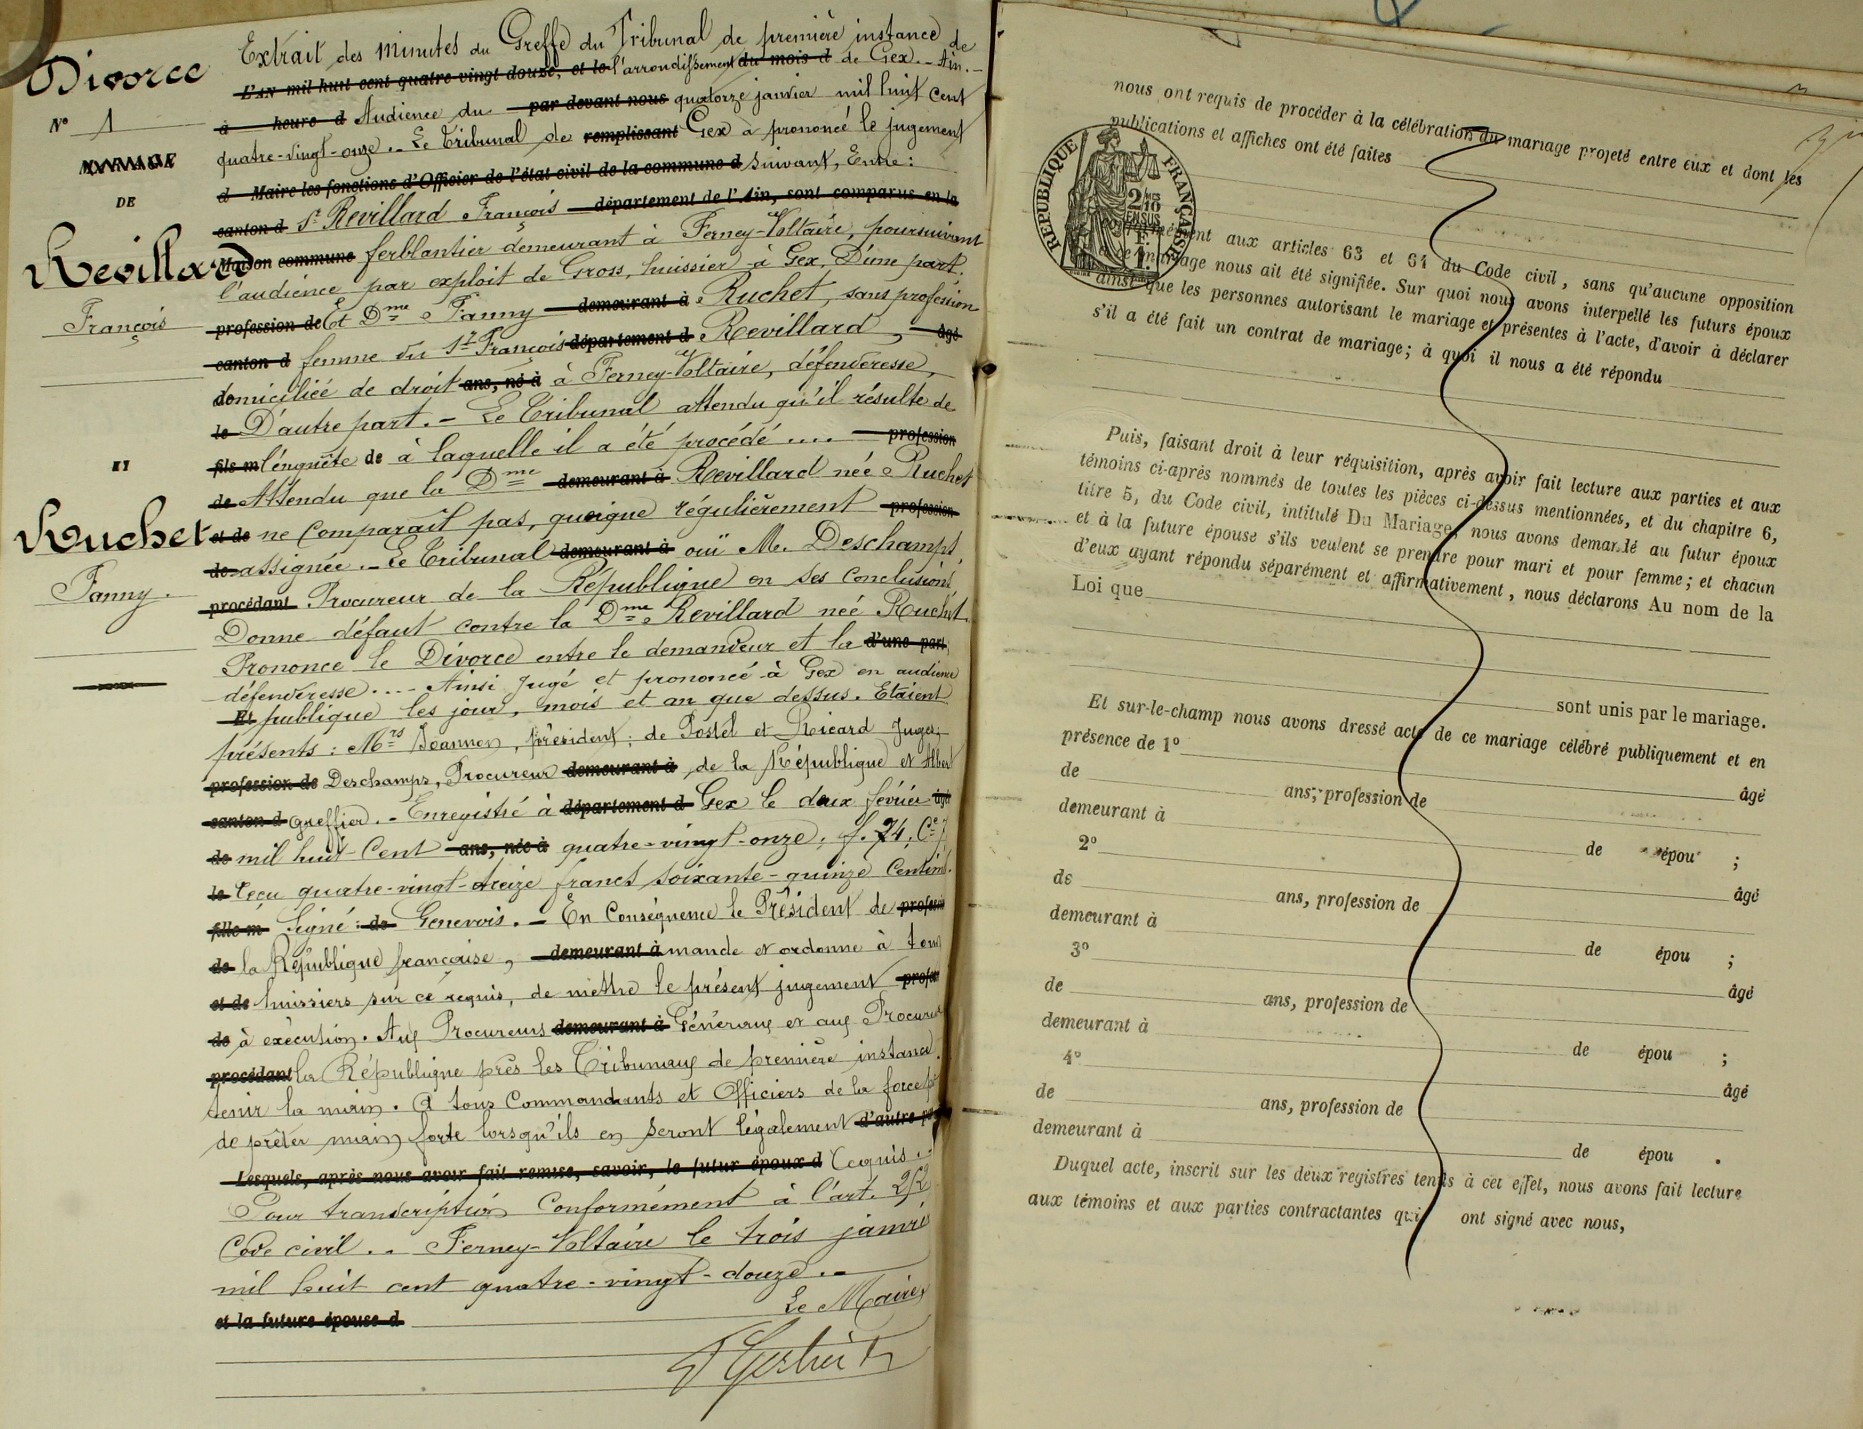 Divorce
N° 1
MARIAGE
DE
Revillard
François
ET
Ruchet
Fanny.
Extrait des minutes du Greffe du Tribunal de première instance de
L'AN mil huit cent quatre-vingt douze, et le l'arrondissement du mois d de Gex. - Ain. -
à heure d Audience du par devant nous quatorze janvier mil huit cent
quatre-vingt-onze. - Le Tribunal de remplissant Gex a prononcé le jugement
d Maire les fonctions d'Officier de l'état civil de la commune d suivant, Entre :
canton d Sr Revillard François département de l'Ain, sont comparus en la
Maison commune ferblantier demeurant à Ferney-Voltaire, poursuivant
l'audience par exploit de Gross, huissier à Gex, D'une part.
profession de Et Dme Fanny demeurant à Ruchet, sans profession
canton d femme du Sr François département d Revillard, âgé
domiciliée de droit ans, né à à Ferney-Voltaire, défenderesse,
le D'autre part. - Le Tribunal attendu qu'il résulte de
fils m l'enquête de à laquelle il a été procédé .... profession
de Attendu que la Dme demeurant à Revillard née Ruchet
et de ne comparaît pas, quoique régulièrement profession
de assignée. - Le Tribunal demeurant à ouï M. Deschamps
procédant Procureur de la République en ses conclusions
Donne défaut contre la Dme Revillard née Ruchet.
Prononce le Divorce entre le demandeur et la d'une part,
défenderesse.... Ainsi jugé et prononcé à Gex en audience
Et publique les jour, mois et an que dessus. Etaient
présents : Mrs Jeannen, président ; de Postel et Ricard Juges,
profession de Deschamps, Procureur demeurant à de la République et Albert
canton d greffier. - Enregistré à département d Gex le deux février âgé
de mil huit cent ans, née à quatre-vingt-onze ; f. 74, Ce 7
le reçu quatre-vingt-treize francs soixante-quinze centim.
fille m Signé : de Genevois. - En conséquence le Président de profession
de la République française, demeurant à mande et ordonne à tous
et de huissiers sur ce requis, de mettre le présent jugement profession
de à exécution. Aux Procureurs demeurant à Généraux et aux Procureurs
procédant la République près les Tribunaux de première instance
tenir la main. A tous Commandants et Officiers de la force p
de prêter main forte lorsqu'ils en seront légalement d'autre part
Lesquels, après nous avoir fait remise, savoir, le futur époux d requis. -
Pour transcription conformément à l'art. 252
Code civil. - Ferney-Voltaire le trois janvi
mil huit cent quatre-vingt-douze. -
et la future épouse d Le Maire,
nous ont requis de procéder à la célébration du mariage projeté entre eux et dont les
publications et affiches ont été faites
RÉPUBLIQUE FRANÇAISE
2/10 EN SUS
1 F.
aux articles 63 et 64 du Code civil, sans qu'aucune opposition
mariage nous ait été signifiée. Sur quoi nous avons interpellé les futurs époux
ainsi que les personnes autorisant le mariage et présentes à l'acte, d'avoir à déclarer
s'il a été fait un contrat de mariage ; à quoi il nous a été répondu
Puis, faisant droit à leur réquisition, après avoir fait lecture aux parties et aux
témoins ci-après nommés de toutes les pièces ci-dessus mentionnées, et du chapitre 6,
titre 5, du Code civil, intitulé Du Mariage, nous avons demandé au futur époux
et à la future épouse s'ils veulent se prendre pour mari et pour femme ; et chacun
d'eux ayant répondu séparément et affirmativement, nous déclarons Au nom de la
Loi que
sont unis par le mariage.
Et sur-le-champ nous avons dressé acte de ce mariage célébré publiquement et en
présence de 1°
de ans, profession de âgé
demeurant à
2° de épou ;
de ans, profession de âgé
demeurant à
3° de épou ;
de ans, profession de âgé
demeurant à
4° de épou ;
de ans, profession de âgé
demeurant à
de épou .
Duquel acte, inscrit sur les deux registres tenus à cet effet, nous avons fait lecture
aux témoins et aux parties contractantes qui ont signé avec nous,